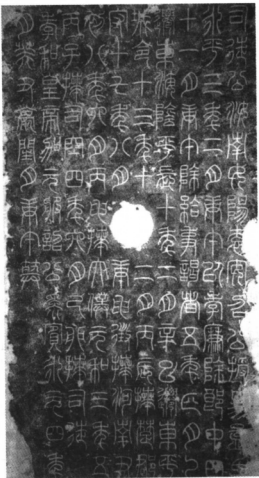 司徒公汝南女陽袁安召公授易孟氏
永平三年二月庚午以孝廉除郎中四
十一月庚午除給事謁者五年四月乙
東海陰平長十年二月辛巳遷東平
城令十三年十二月丙辰拜楚郡
守十七年八月庚申徵拜河南尹
初八年六月丙申拜太僕元和三年五
丙子拜司空四年六月己卯拜司徒
孝和皇帝加元服詔公為賓永元四年
月癸丑薨閏月庚午葬